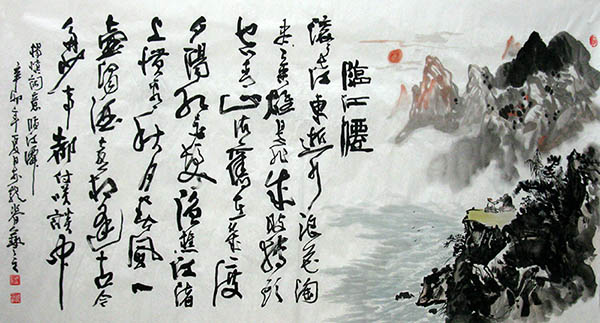 臨江僊
滚滚長江東逝水浪花淘
尽英雄是非成敗轉頭
空青山依舊在幾度
夕陽紅白髮漁樵江渚
上慣看秋月春風一
壺濁酒喜相逢古今
多少事都付笑談中
楊慎詞意臨江僊
辛卯年夏月